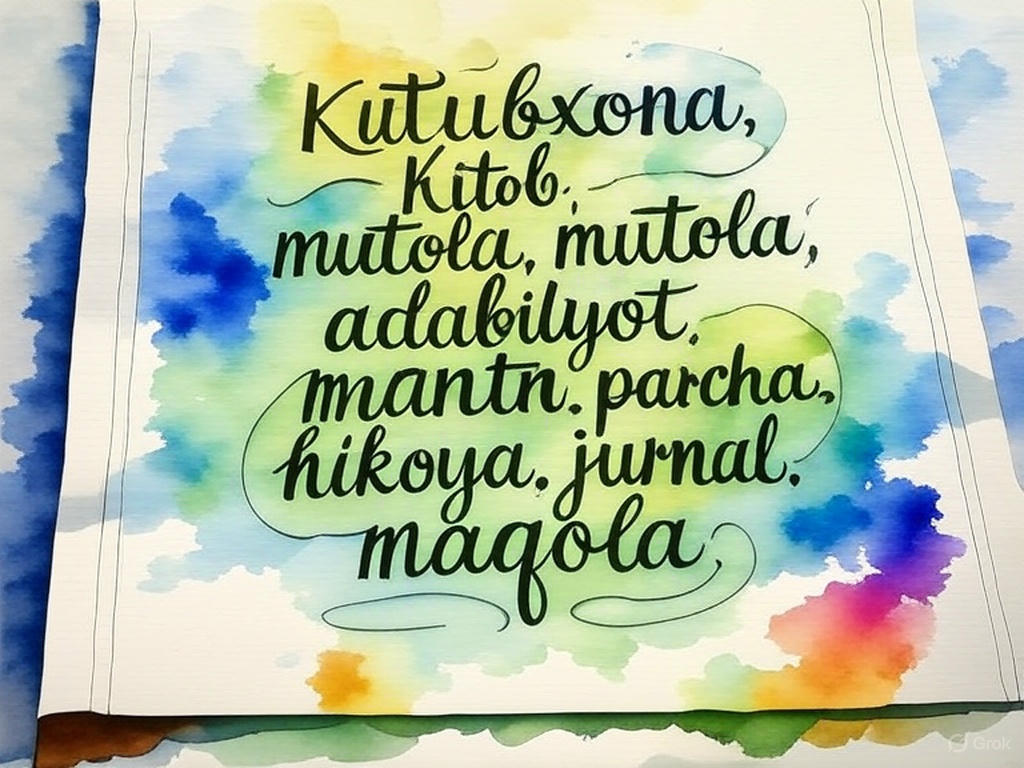 Kutubxona,
Kitob.
mutola, mutola,
adabilyot.
mantn. parcha,
hikoya. jurnal.
maqola,
Grok